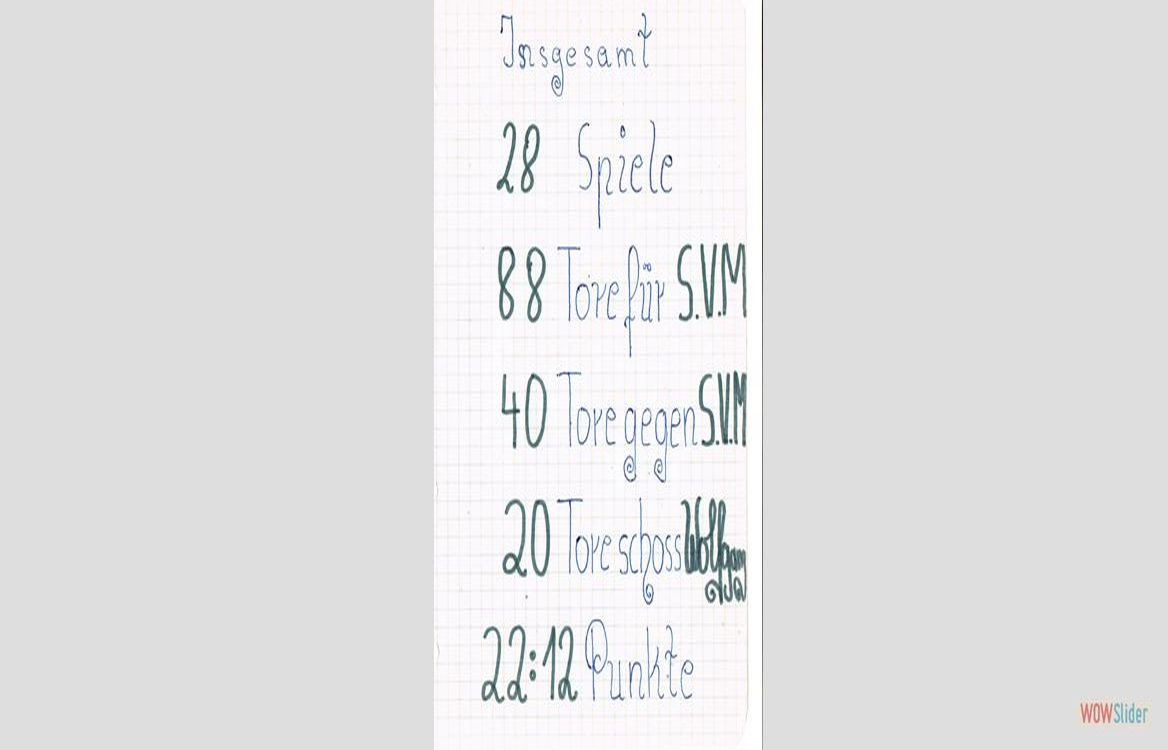 Insgesamt
28 Spiele
88 Tore für S.V.M
40 Tore gegen S.V.M
20 Tore schoss Wolfgang
22:12 Punkte
WOWSlider